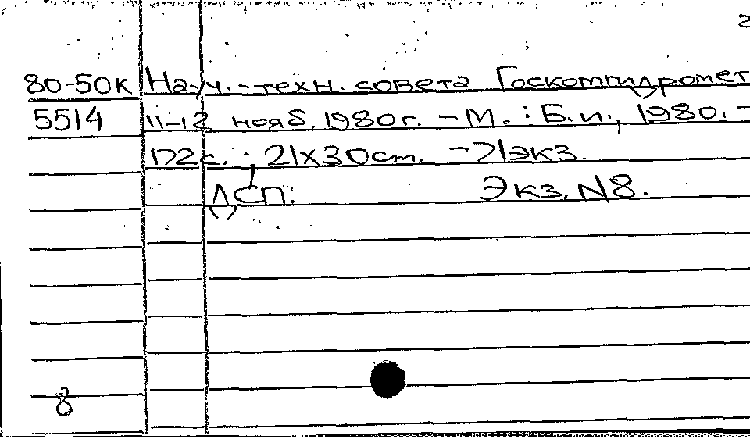 2
80-50к Науч.-техн. совета Госкомгидромет
5514 11-12 нояб. 1980г. - М. : Б.и., 1980. -
172с. ; 21х30см. - 71экз.
ДСП. Экз. N8.
8